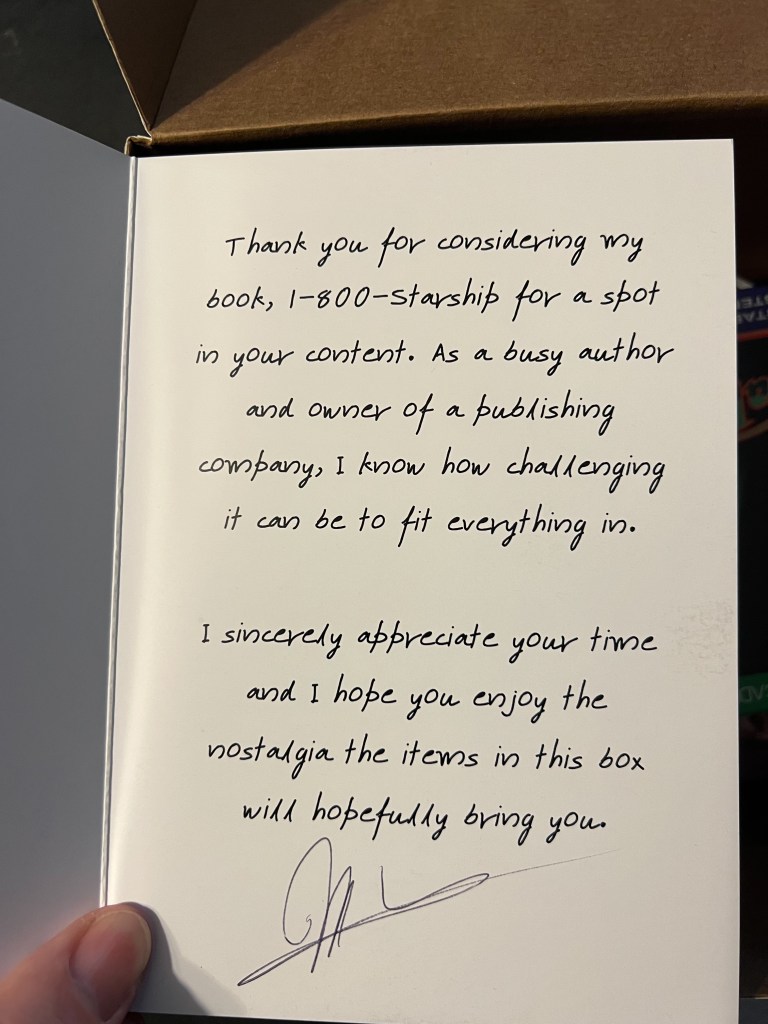 Thank you for considering my
book, 1-800-Starship for a spot
in your content. As a busy author
and owner of a publishing
company, I know how challenging
it can be to fit everything in.
I sincerely appreciate your time
and I hope you enjoy the
nostalgia the items in this box
will hopefully bring you.